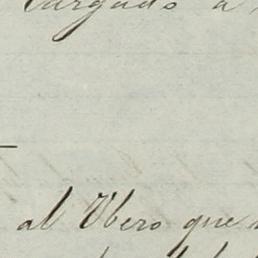 Cargado a
al Vbero que